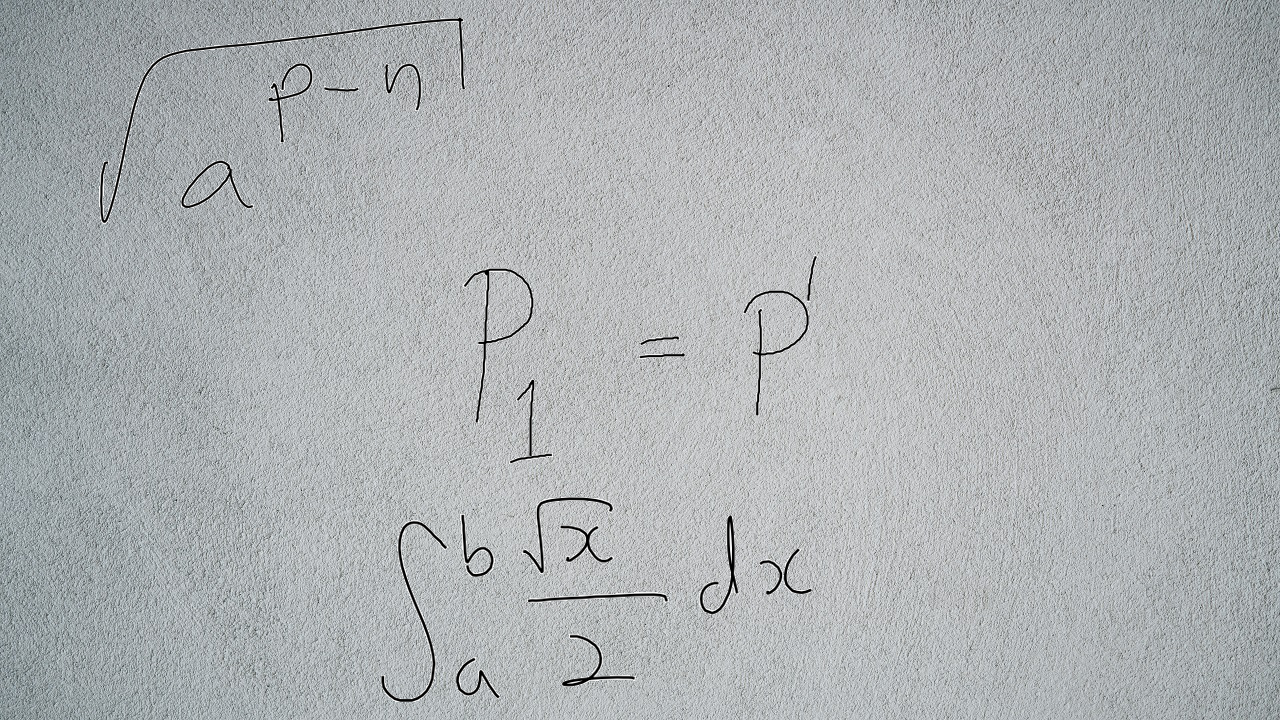 \sqrt{a^{p-n}}
P_1 = p'
\int_a^b \frac{\sqrt{x}}{2} dx